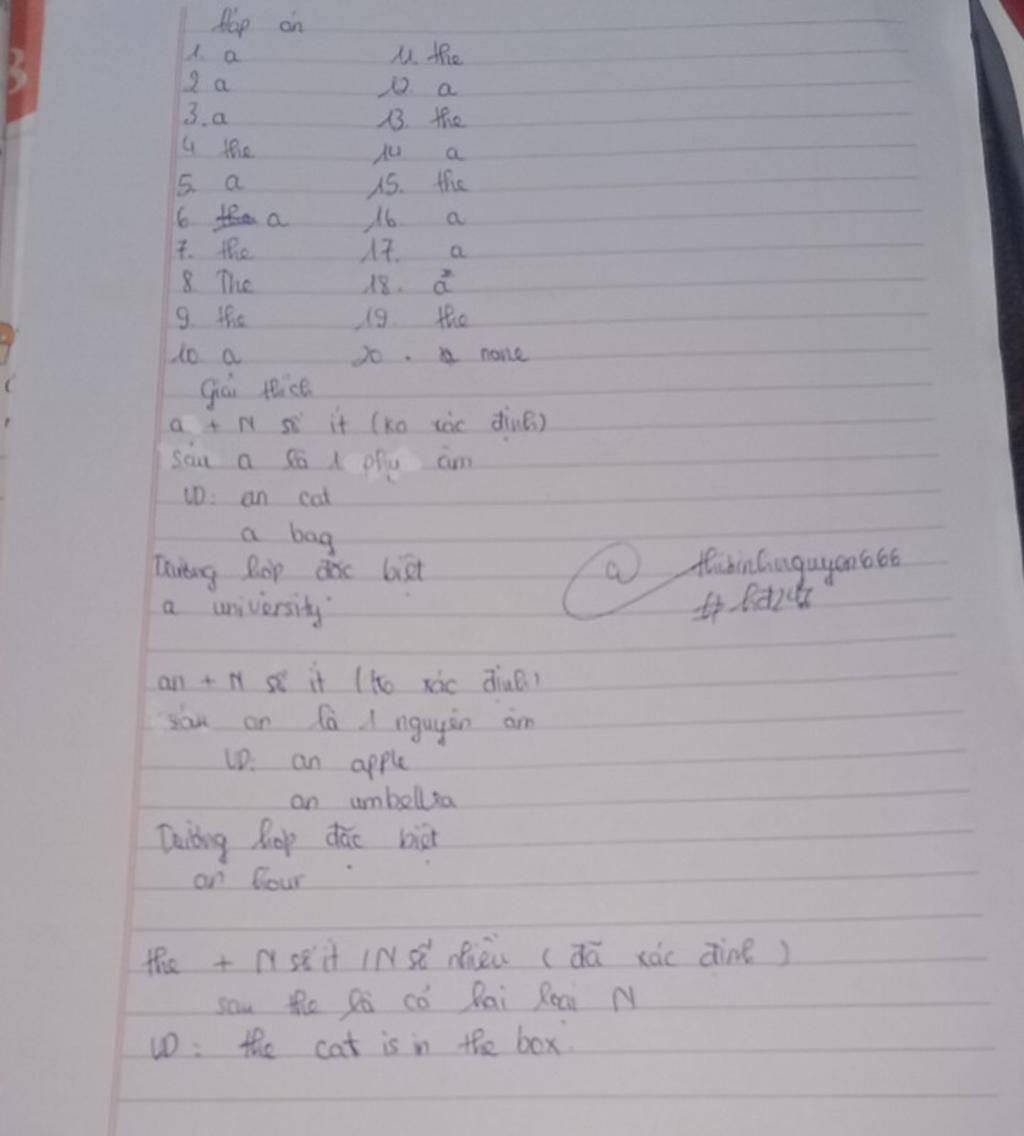 Đáp án
1. a 11. the
2 a 12 a
3. a 13. the
4 the 14 a
5. a 15. the
6 the a 16 a
7. the 17. a
8 The 18. a
9. the 19. the
10 a 20. a none
Giải thích
a + N số ít (ko xác định)
sau a là 1 phụ âm
VD: an cat
a bag
Trường hợp đặc biệt
a university
@thibinhnguyen666
an + N số ít (ko xác định)
sau an là 1 nguyên âm
VD: an apple
an umbellra
Trường hợp đặc biệt
an hour
the + N số ít / N số nhiều (đã xác định)
sau the là có hai loại N
VD: the cat is in the box.